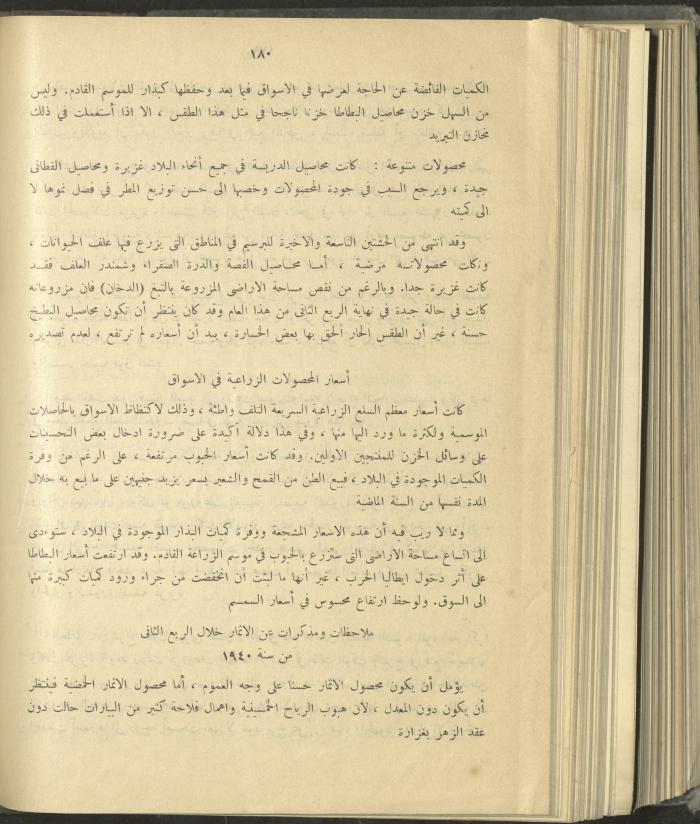 ١٨٠
الكميات الفائضة عن الحاجة لعرضها في الاسواق فيما بعد وحفظها كبذار للموسم القادم. وليس
من السهل خزن محاصيل البطاطا خزنا ناجحا في مثل هذا الطقس ، الا اذا أستعملت في ذلك
مخازن التبريد
محصولات متنوعة : كانت محاصيل الدريسة في جميع أنحاء البلاد غزيرة ومحاصيل القطانى
جيدة ، ويرجع السبب في جودة المحصولات وخصبها الى حسن توزيع المطر في فصل نموها لا
الى كميته
وقد انتهى من الحشتين التاسعة والاخيرة للبرسيم في المناطق التى يزرع فيها علف الحيوانات ،
وكانت محصولاته مرضية ، أما محاصيل الفصة والذرة الصفراء وشمندر العلف فقد
كانت غزيرة جدا. وبالرغم من نقص مساحة الاراضى المزروعة بالتبغ (الدخان) فان مزروعاته
كانت في حالة جيدة في نهاية الربع الثانى من هذا العام وقد كان ينتظر أن تكون محاصيل البطيخ
حسنة ، غير أن الطقس الحار ألحق بها بعض الخسارة ، بيد أن أسعاره لم ترتفع ، لعدم تصديره
أسعار المحصولات الزراعية في الاسواق
كانت أسعار معظم السلع الزراعية السريعة التلف واطئة ، وذلك لاكتظاظ الاسواق بالحاصلات
الموسمية ولكثرة ما ورد اليها منها ، وفي هذا دلالة أكيدة على ضرورة ادخال بعض التحسينات
على وسائل الخزن للمنتجين الاولين. وقد كانت أسعار الحبوب مرتفعة ، على الرغم من وفرة
الكميات الموجودة في البلاد ، فبيع الطن من القمح والشعير بسعر يزيد جنيهين على ما بيع به خلال
المدة نفسها من السنة الماضية
ومما لا ريب فيه أن هذه الاسعار المشجعة ووفرة كميات البذار الموجودة في البلاد ، ستوءدى
الى اتساع مساحة الاراضى التى ستزرع بالحبوب في موسم الزراعة القادم. وقد ارتفعت أسعار البطاطا
على أثر دخول ايطاليا الحرب ، غير أنها ما لبثت أن انخفضت من جراء ورود كميات كبيرة منها
الى السوق. ولوحظ ارتفاع محسوس في أسعار السمسم
ملاحظات ومذكرات عن الاثمار خلال الربع الثانى
من سنة ١٩٤٠
يؤمل أن يكون محصول الاثمار حسنا على وجه العموم ، أما محصول الاثمار الحمضية فينتظر
أن يكون دون المعدل ، لان هبوب الرياح الخمسينية واهمال فلاحة كثير من البيارات حالت دون
عقد الزهر بغزارة